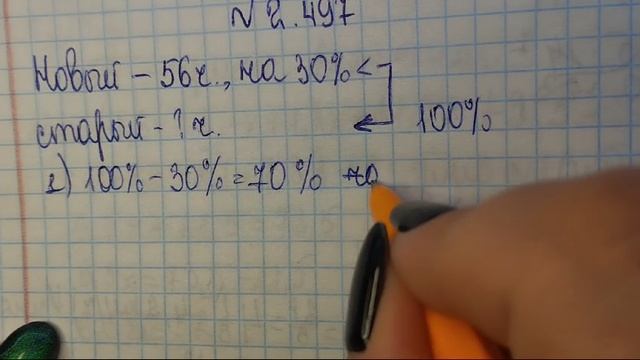 № 2.497
Новый - 56 г., на 30% <
старый - ? г. 100%
1) 100% - 30% = 70%